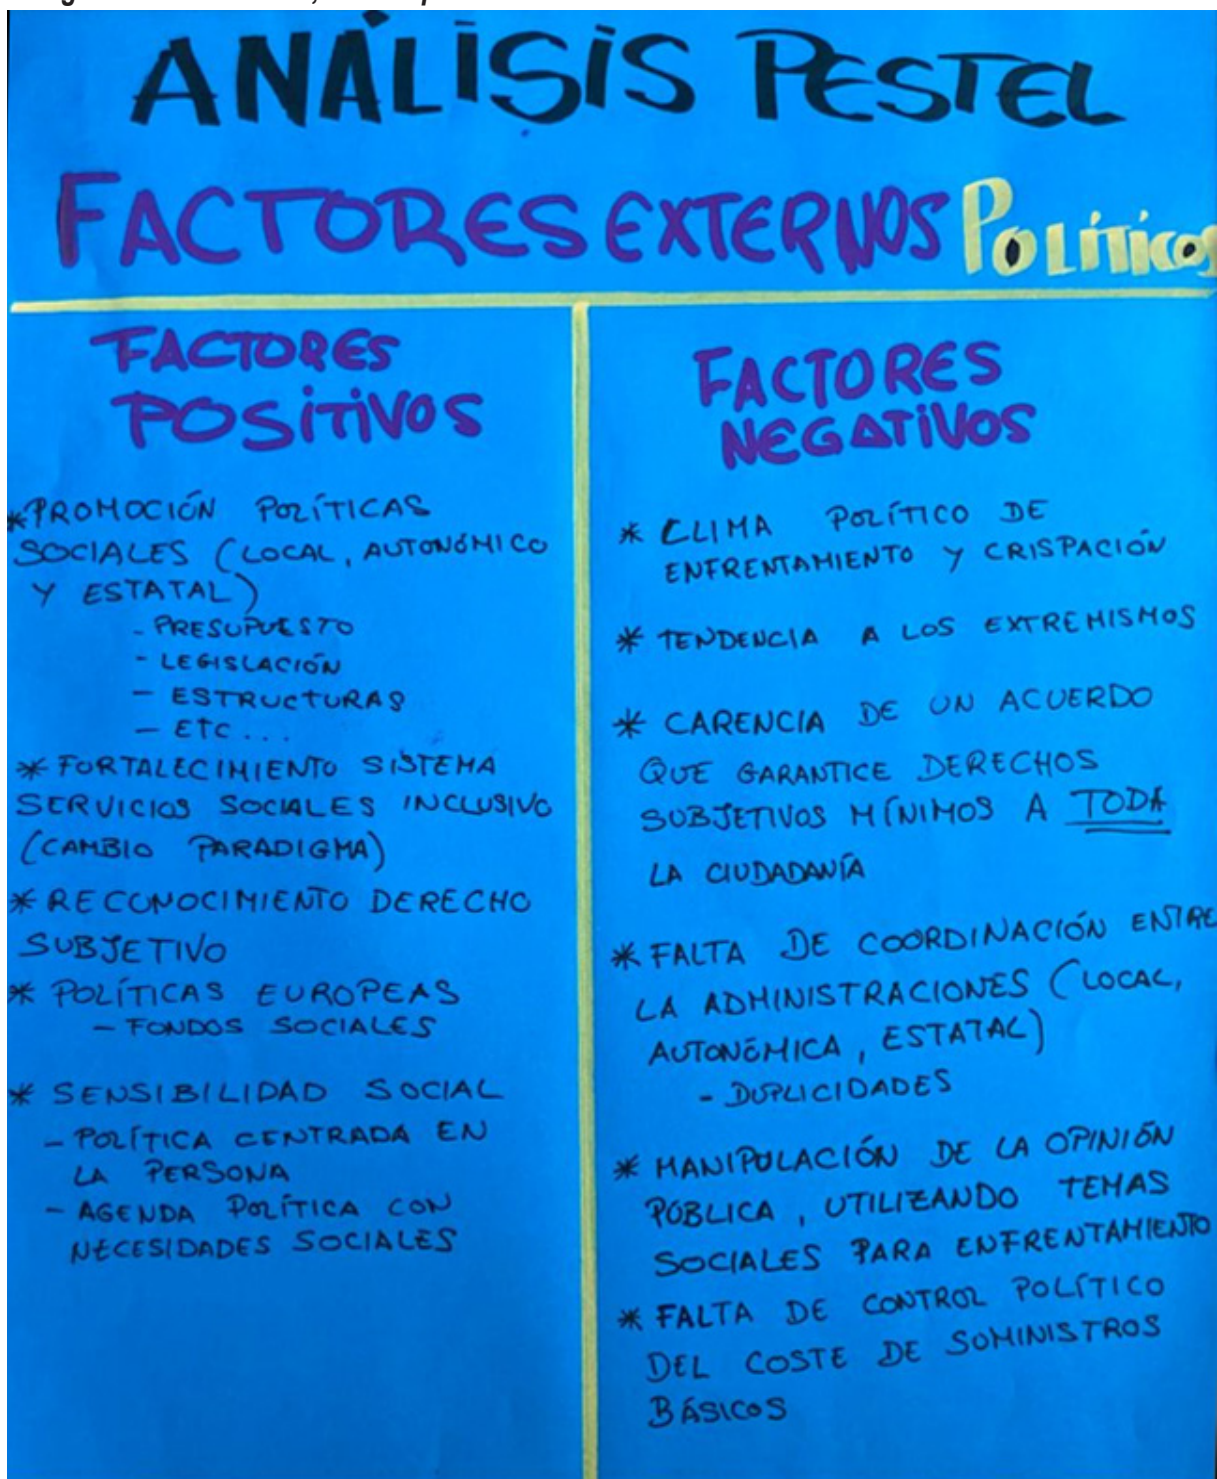 ANÁLISIS PESTEL
FACTORES EXTERNOS POLÍTICOS
FACTORES
POSITIVOS
*PROMOCIÓN POLÍTICAS
SOCIALES (LOCAL, AUTONÓMICO
Y ESTATAL)
- PRESUPUESTO
- LEGISLACIÓN
- ESTRUCTURAS
- ETC...
* FORTALECIMIENTO SISTEMA
SERVICIOS SOCIALES INCLUSIVO
(CAMBIO PARADIGMA)
* RECONOCIMIENTO DERECHO
SUBJETIVO
* POLÍTICAS EUROPEAS
- FONDOS SOCIALES
* SENSIBILIDAD SOCIAL
- POLÍTICA CENTRADA EN
LA PERSONA
- AGENDA POLÍTICA CON
NECESIDADES SOCIALES
FACTORES
NEGATIVOS
* CLIMA POLÍTICO DE
ENFRENTAMIENTO Y CRISPACIÓN
* TENDENCIA A LOS EXTREMISMOS
* CARENCIA DE UN ACUERDO
QUE GARANTICE DERECHOS
SUBJETIVOS MÍNIMOS A TODA
LA CIUDADANÍA
* FALTA DE COORDINACIÓN ENTRE
LA ADMINISTRACIONES (LOCAL,
AUTONÓMICA, ESTATAL)
- DUPLICIDADES
* MANIPULACIÓN DE LA OPINIÓN
PÚBLICA, UTILIZANDO TEMAS
SOCIALES PARA ENFRENTAMIENTO
* FALTA DE CONTROL POLÍTICO
DEL COSTE DE SUMINISTROS
BÁSICOS